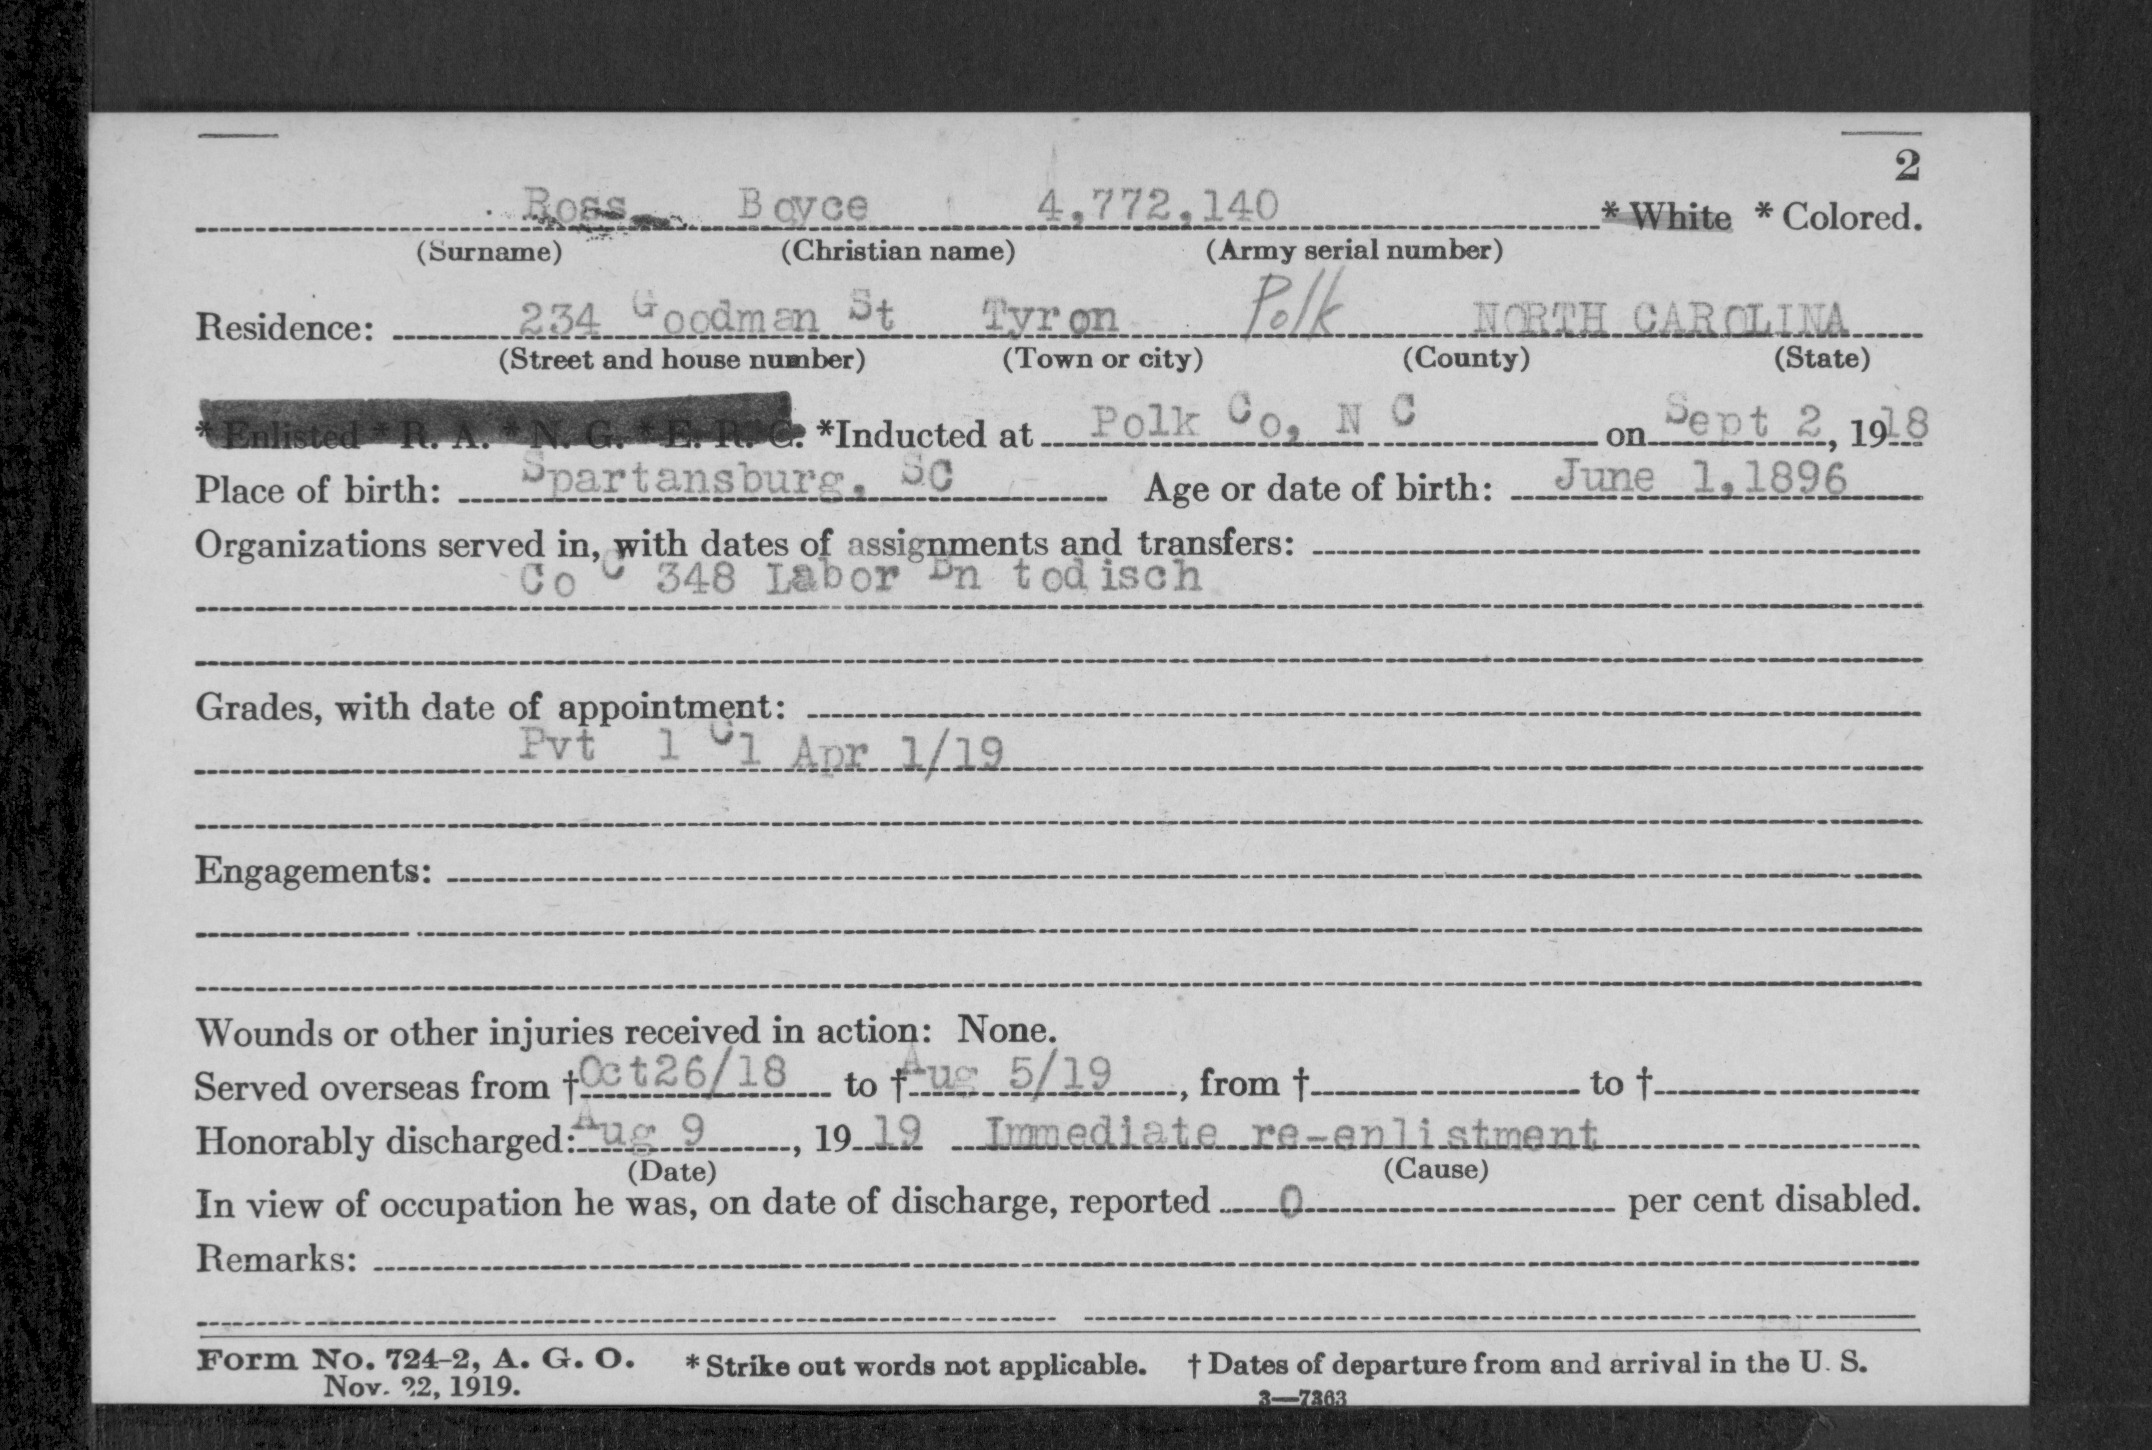 2
Ross Boyce 4,772,140 * White * Colored.
(Surname) (Christian name) (Army serial number)
Residence: 234 Goodman St Tyron Polk NORTH CAROLINA
(Street and house number) (Town or city) (County) (State)
* Enlisted * R. A. * N. G. * E. R. C. *Inducted at Polk Co, N C on Sept 2, 1918
Place of birth: Spartansburg, SC Age or date of birth: June 1,1896
Organizations served in, with dates of assignments and transfers:
Co C 348 Labor Bn todisch
Grades, with date of appointment:
Pvt 1 Cl Apr 1/19
Engagements:
Wounds or other injuries received in action: None.
Served overseas from †Oct26/18 to †Aug 5/19, from † to †
Honorably discharged: Aug 9, 1919 Immediate re-enlistment
(Date) (Cause)
In view of occupation he was, on date of discharge, reported 0 per cent disabled.
Remarks:
Form No. 724-2, A. G. O. * Strike out words not applicable. † Dates of departure from and arrival in the U. S.
Nov. 22, 1919.
3—7363